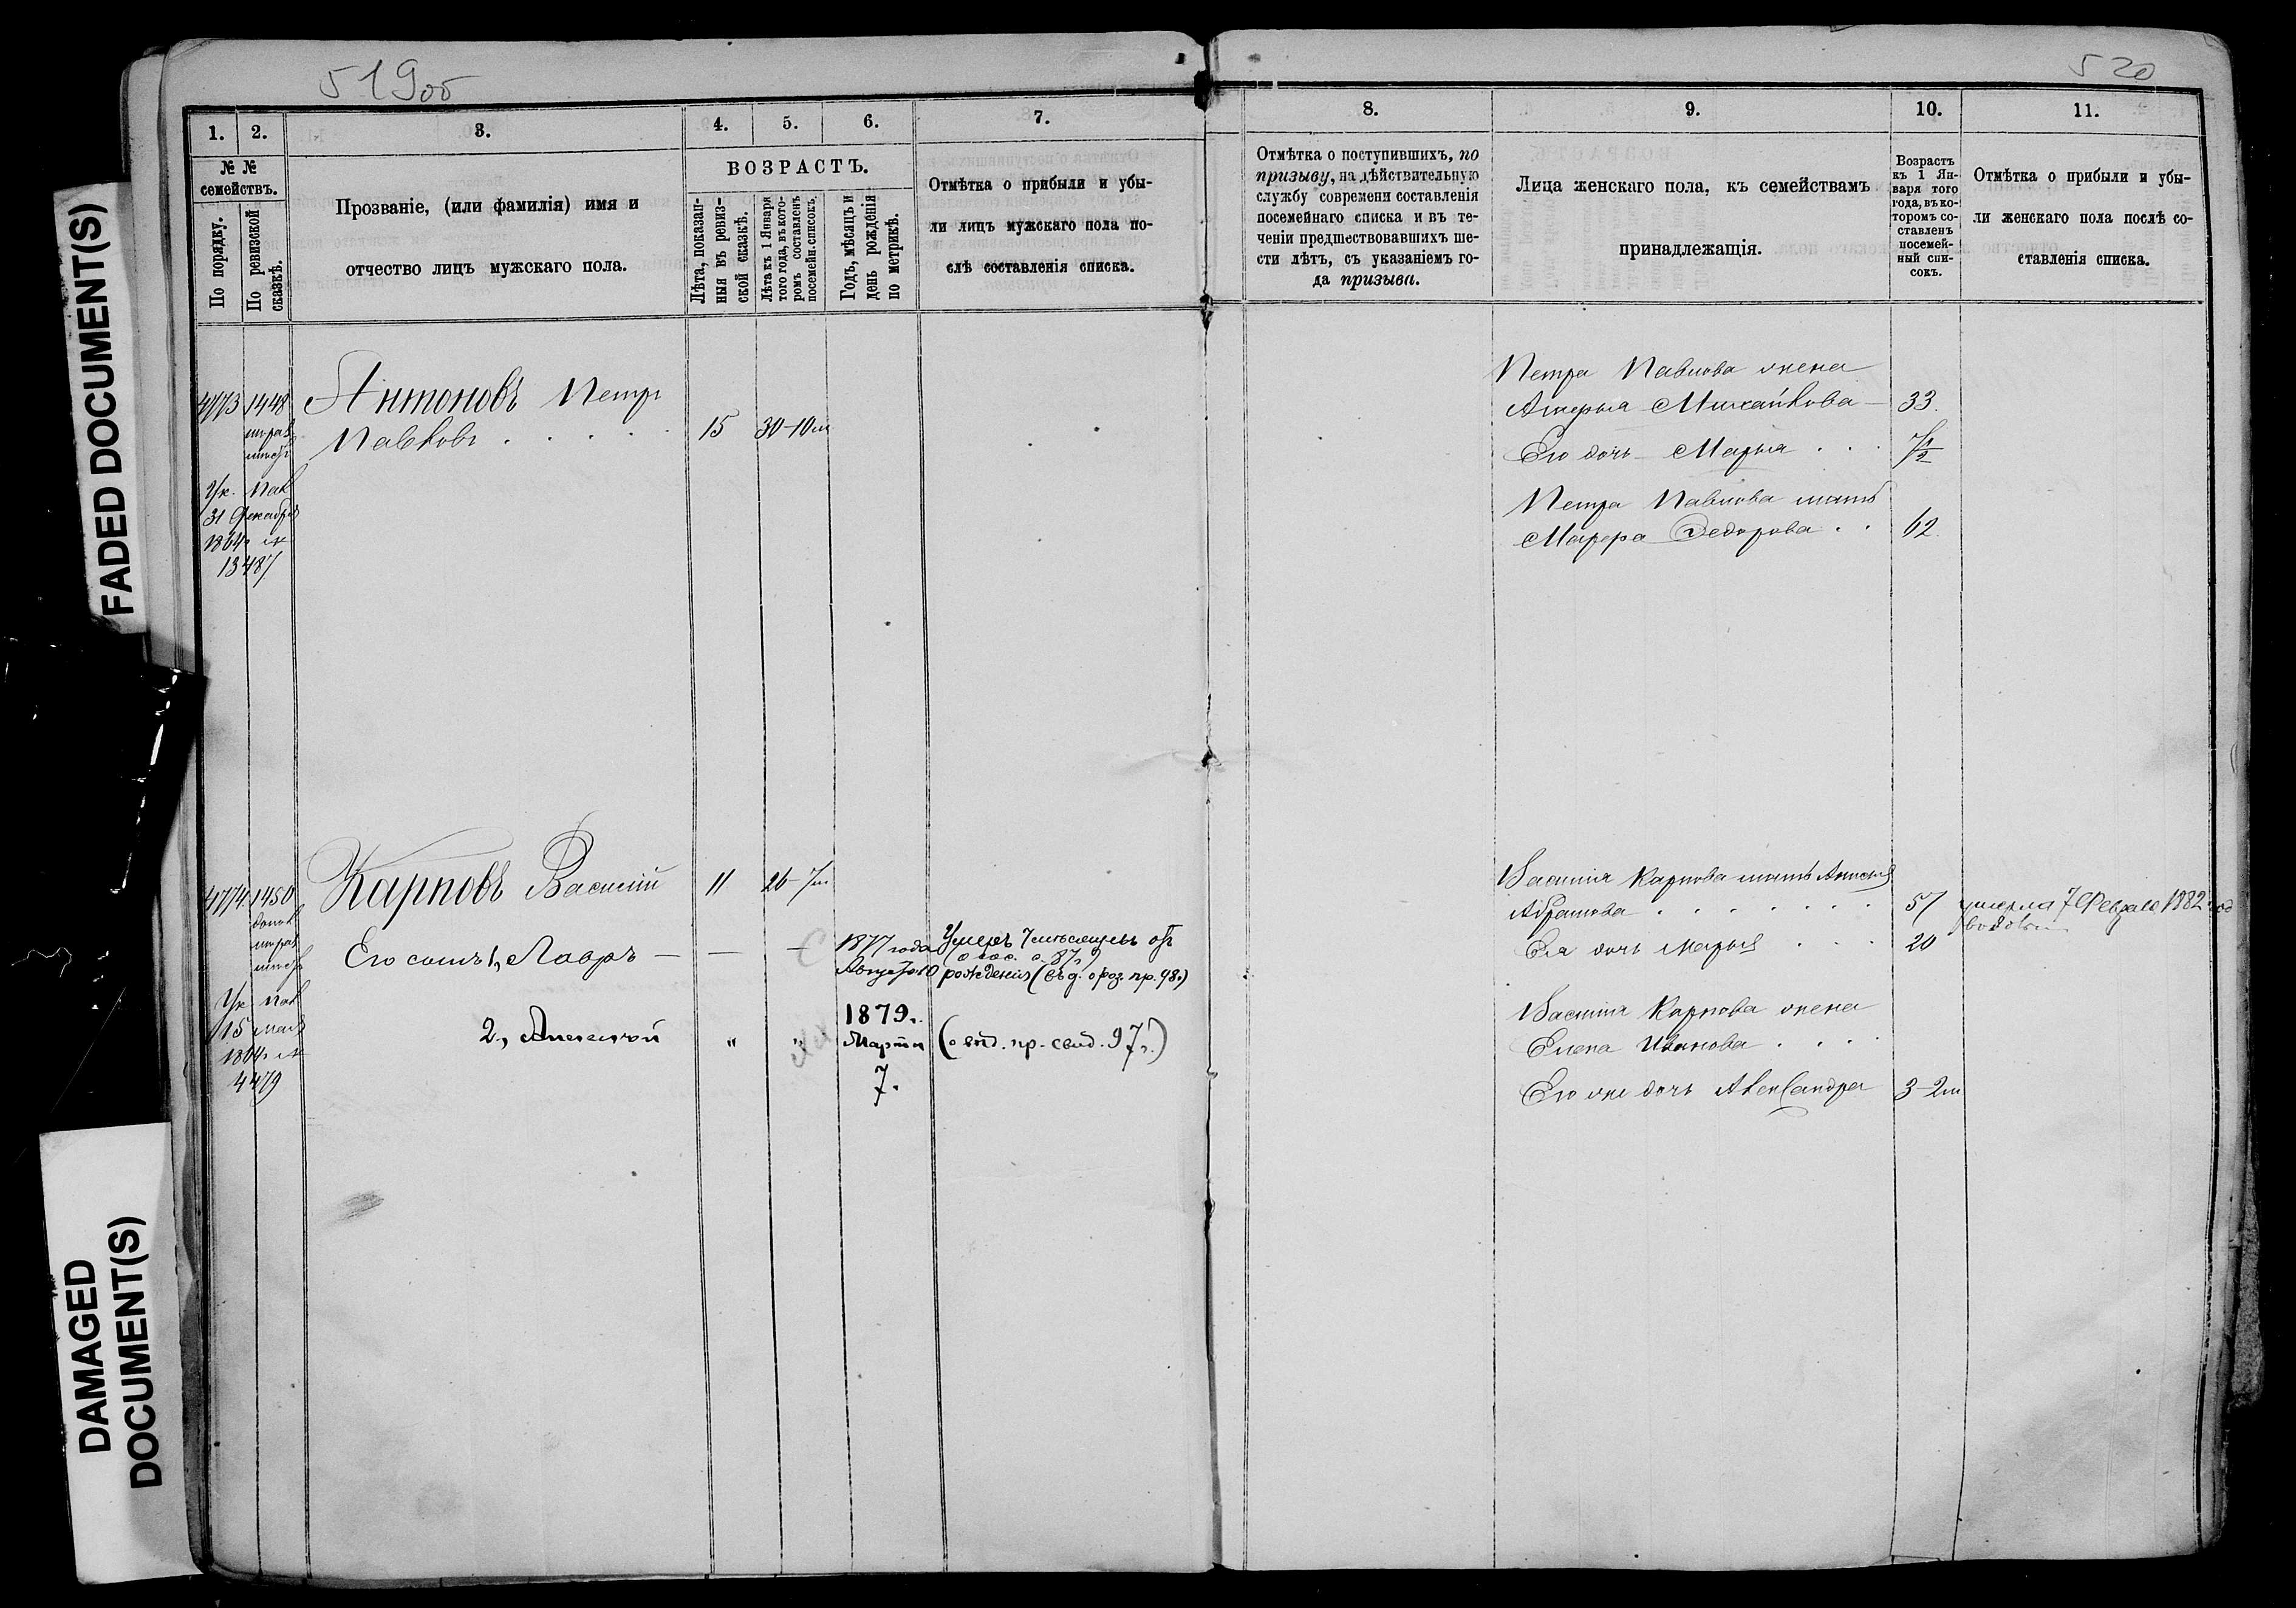 FADED DOCUMENT(S)
DAMAGED
DOCUMENT(S)
519об
1.
2.
3.
4.
5.
6.
7.
№ №
семействъ.
По порядку.
По ревизской
сказкѣ.
Прозваніе, (или фамилія) имя и
отчество лицъ мужскаго пола.
ВОЗРАСТЪ.
Лѣта, показан-
ныя въ ревиз-
ской сказкѣ.
Лѣта къ 1 Января
того года, въ кото-
ромъ составленъ
посемейн. списокъ.
Годъ, мѣсяцъ и
день рожденія
по метрикѣ.
Отмѣтка о прибыли и убы-
ли лицъ мужскаго пола по-
слѣ составленія списка.
4773 1448
Антоновъ Петръ
Павловъ
15 30-10м
Ук. Пал
31 Декабря
1864
13487
4774 1450
Карповъ Василій
11 26-7м
Его сынъ 1, Лавръ
1877 года
Августа 10
Умеръ 7 мѣсяцевъ отъ
рожденія
Ук. Пал
15 мая
1864
4479
2, Алексѣй
" "
1879.
Марта
7.
520
8.
9.
10.
11.
Отмѣтка о поступившихъ, по
призыву, на дѣйствительную
службу современи составленія
посемейнаго списка и въ те-
ченіи предшествовавшихъ ше-
сти лѣтъ, съ указаніемъ го-
да призыва.
Лица женскаго пола, къ семействамъ
принадлежащія.
Возрастъ
къ 1 Ян-
варя того
года, въ ко-
торомъ со-
ставленъ
посемей-
ный спи-
сокъ.
Отмѣтка о прибыли и убы-
ли женскаго пола послѣ со-
ставленія списка.
Петра Павлова жена
Михайлова 33.
Его дочь Марья
Петра Павлова мать
Марфа Федорова 62
Василія Карпова мать Анисья
Абрамова 57 умерла 7 Февраля 1882 год
Ея дочь Марья 20
Василія Карпова жена
Елена Иванова
Его же дочь Александра 3-2м